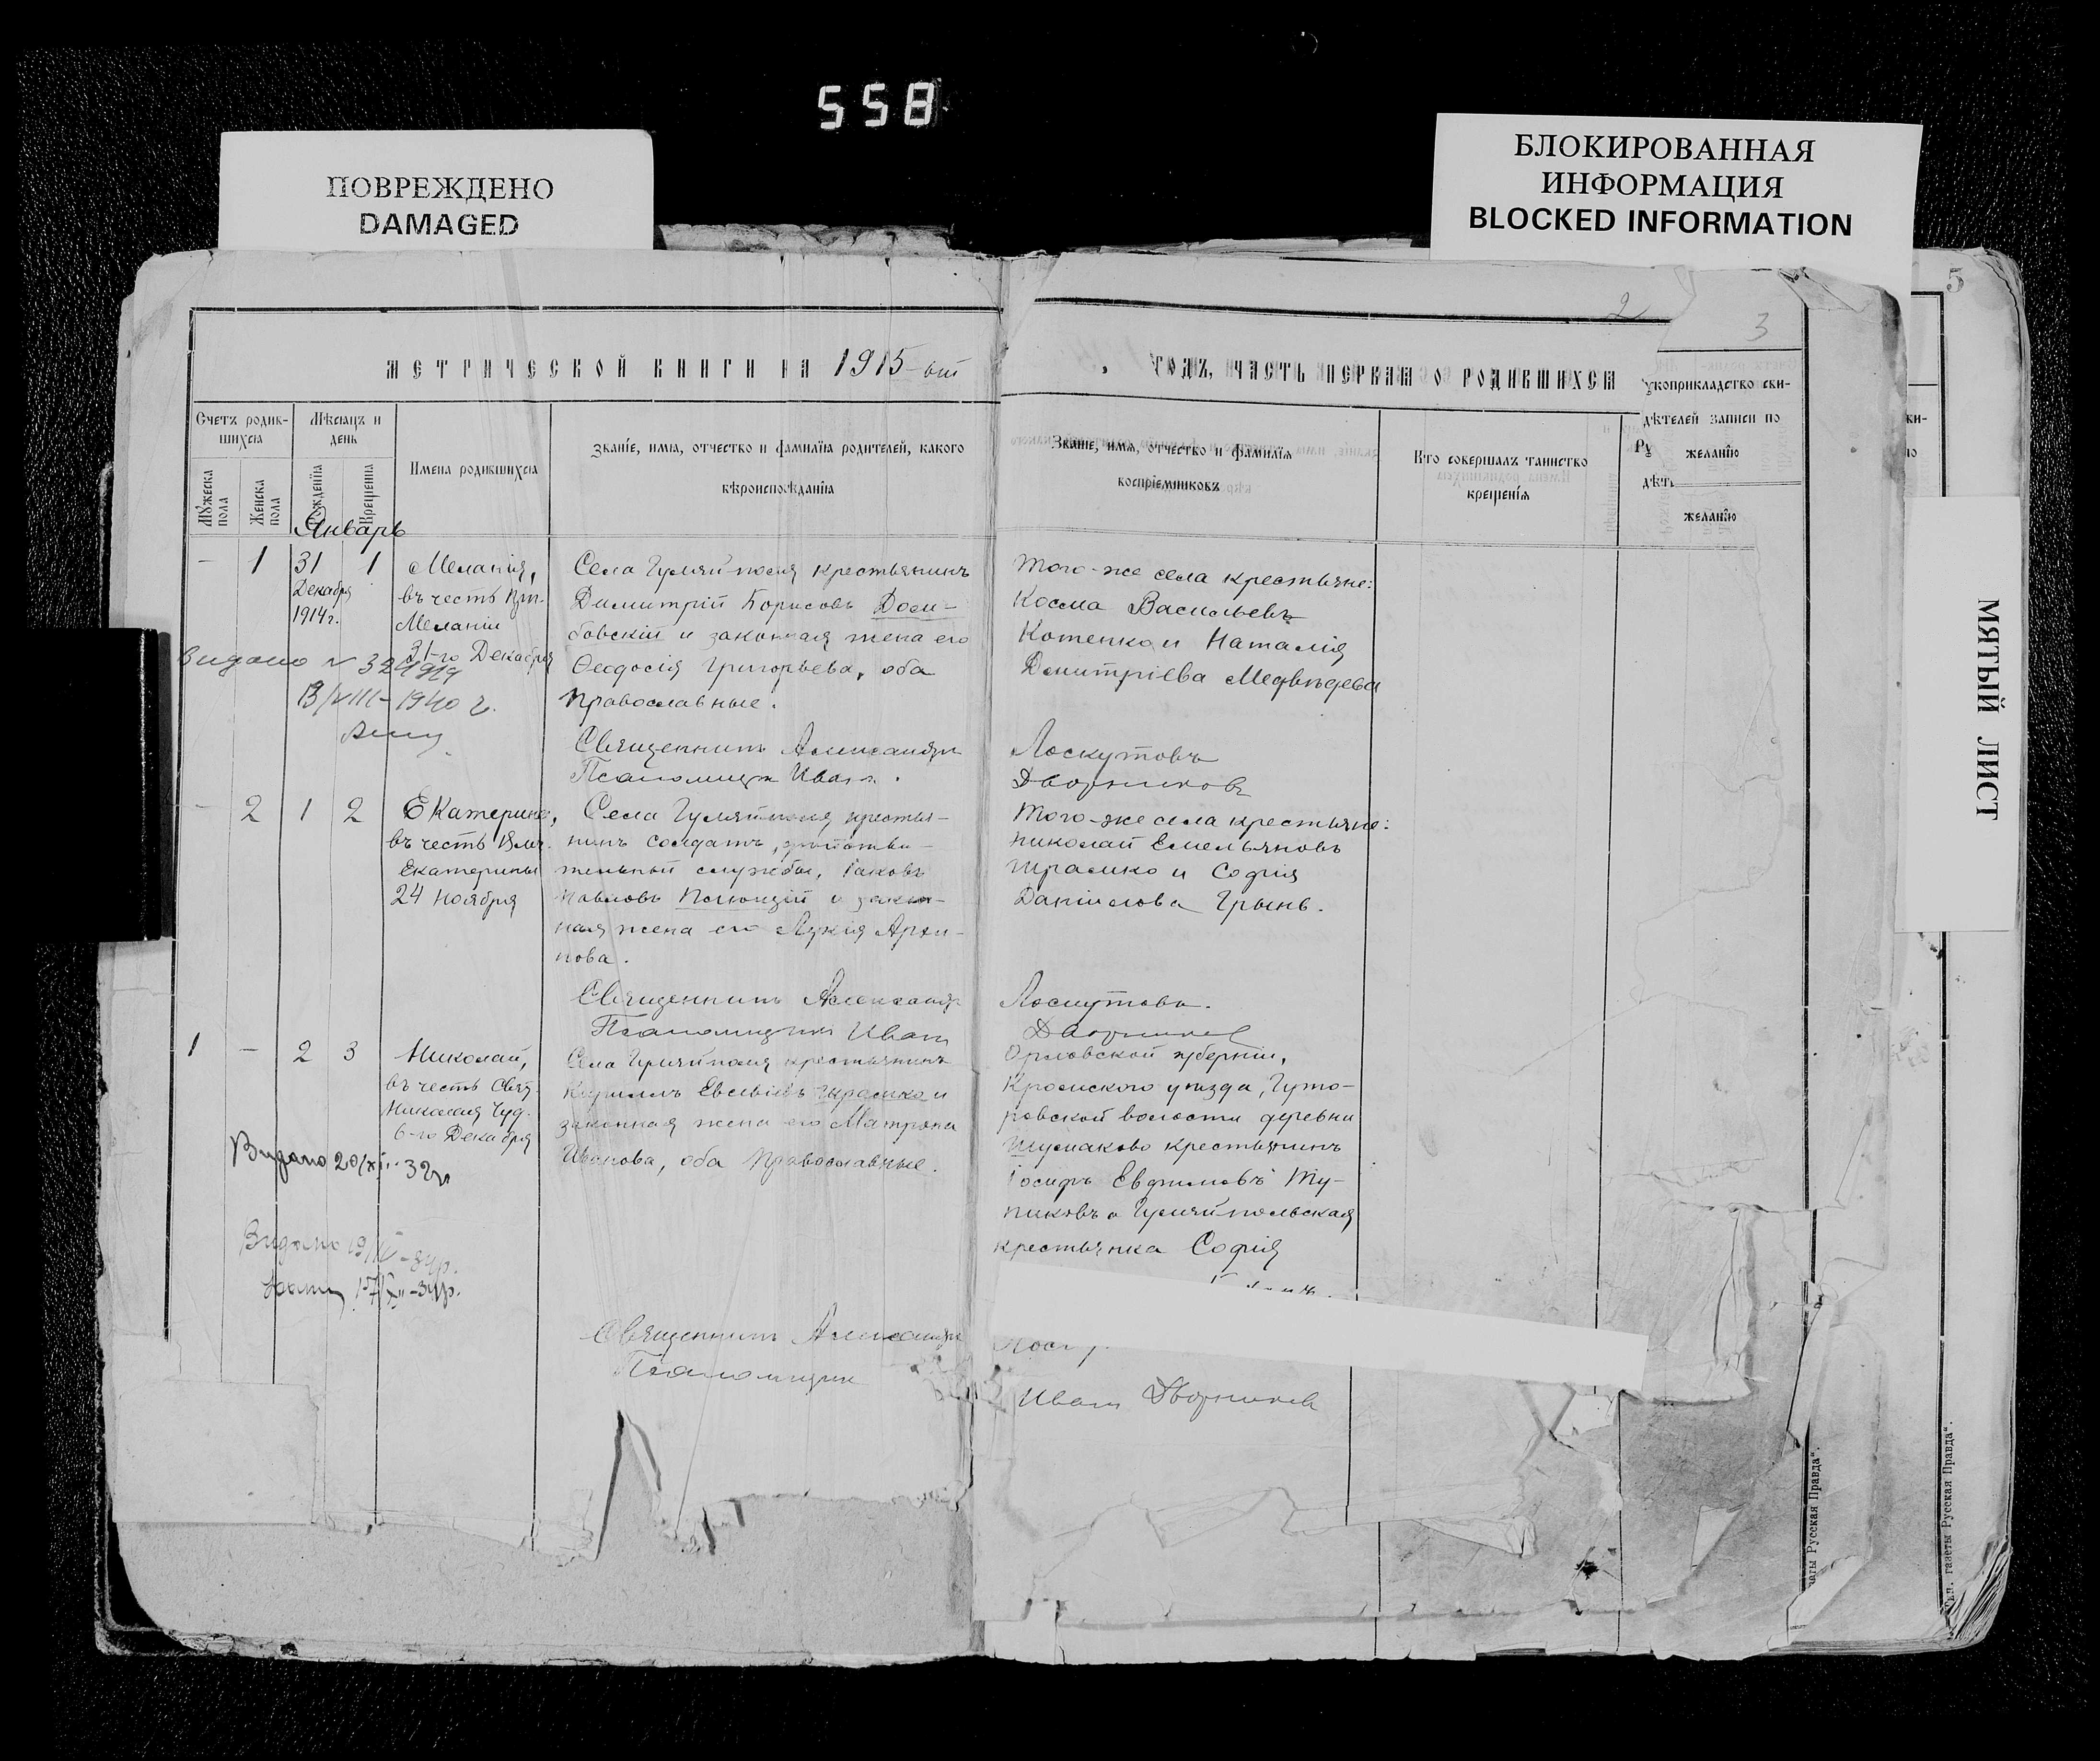 558
ПОВРЕЖДЕНО
DAMAGED
БЛОКИРОВАННАЯ
ИНФОРМАЦИЯ
BLOCKED INFORMATION
5
2
3
МЯТЫЙ ЛИСТ
МЕТРИЧЕСКОЙ КНИГИ НА 1915-ый
ГОДЪ, ЧАСТЬ ПЕРВАЯ О РОДИВШИХСЯ
Счетъ родив-
шихся
Мѣсяцъ и
день
Мужеска
пола
Женска
пола
Рожденія
Крещенія
Имена родившихся
Званіе, имя, отчество и фамилія родителей, какого
вѣроисповѣданія
Званіе, имя, отчество и фамилія
воспріемниковъ
Кто совершалъ таинство
крещенія
Рукоприкладство сви-
дѣтелей записи по
желанію
Ру
дѣт
желанію
Январь
- 1 31 1
Декабря
1914 г.
Меланія,
въ честь Прп.
Меланіи
31-го Декабря
Села Гуляйполя крестьянинъ
Димитрій Борисовъ
бовскій и законная жена его
Ѳеодосія Григорьева, оба
православные.
Того-же села крестьяне:
Косма Васильевъ
Котенко и Наталія
Димитріева Медвѣдева
Видано № 32
1940 г.
Священникъ Александръ
Лоскутовъ
Псаломщикъ Иванъ
Дворниковъ
- 2 1 2
Екатерина,
въ честь Влмч.
Екатерины
24 Ноября
Села Гуляйполя крестья-
нинъ солдатъ, дѣйстви-
тельной службы, Іаковъ
Павловъ и закон-
ная жена его Лукія Архи-
пова.
Того-же села крестьяне:
Николай Емельяновъ
Шрамко и Софія
Даніилова Грынь.
Священникъ Александръ
Лоскутовъ.
Псаломщикъ Иванъ
Дворниковъ
1 - 2 3
Николай,
въ честь Свят.
Николая Чуд.
6-го Декабря
Села Гуляйполя крестьянинъ
Кириллъ Евсевіевъ Шрамко и
законная жена его Матрона
Иванова, оба православные.
Орловской губерніи,
Кромского уѣзда, Гуто-
ровской волости деревни
Шумаково крестьянинъ
Іосифъ Евфимовъ Ту-
пиковъ и Гуляйпольская
крестьянка Софія
Видано 20/XI-32 г.
Видано 19/IV-34р.
17/XII-34р.
Священникъ Александръ
Псаломщикъ
Иванъ Дворниковъ
газеты Русская Правда".
Тип. газеты Русская Правда".